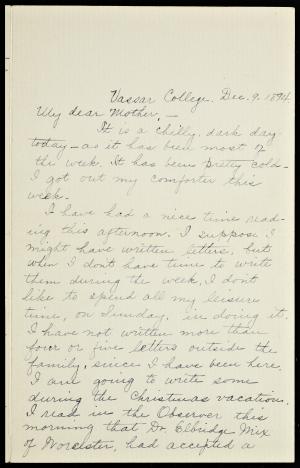 Vassar College. Dec. 9. 1894.
My dear Mother,—
It is a chilly, dark day
today—as it has been most of
the week. It has been pretty cold—
I got out my comforter this
week.
I have had a nice time read-
ing this afternoon. I suppose I
might have written letters, but
when I don't have time to write
them during the week, I don't
like to spend all my leisure
time, on Sunday, in doing it.
I have not written more than
four or five letters outside the
family, since I have been here.
I am going to write some
during the Christmas vacation.
I read in the Observer this
morning that Dr. Elbridge Mix
of Worcester, had accepted a